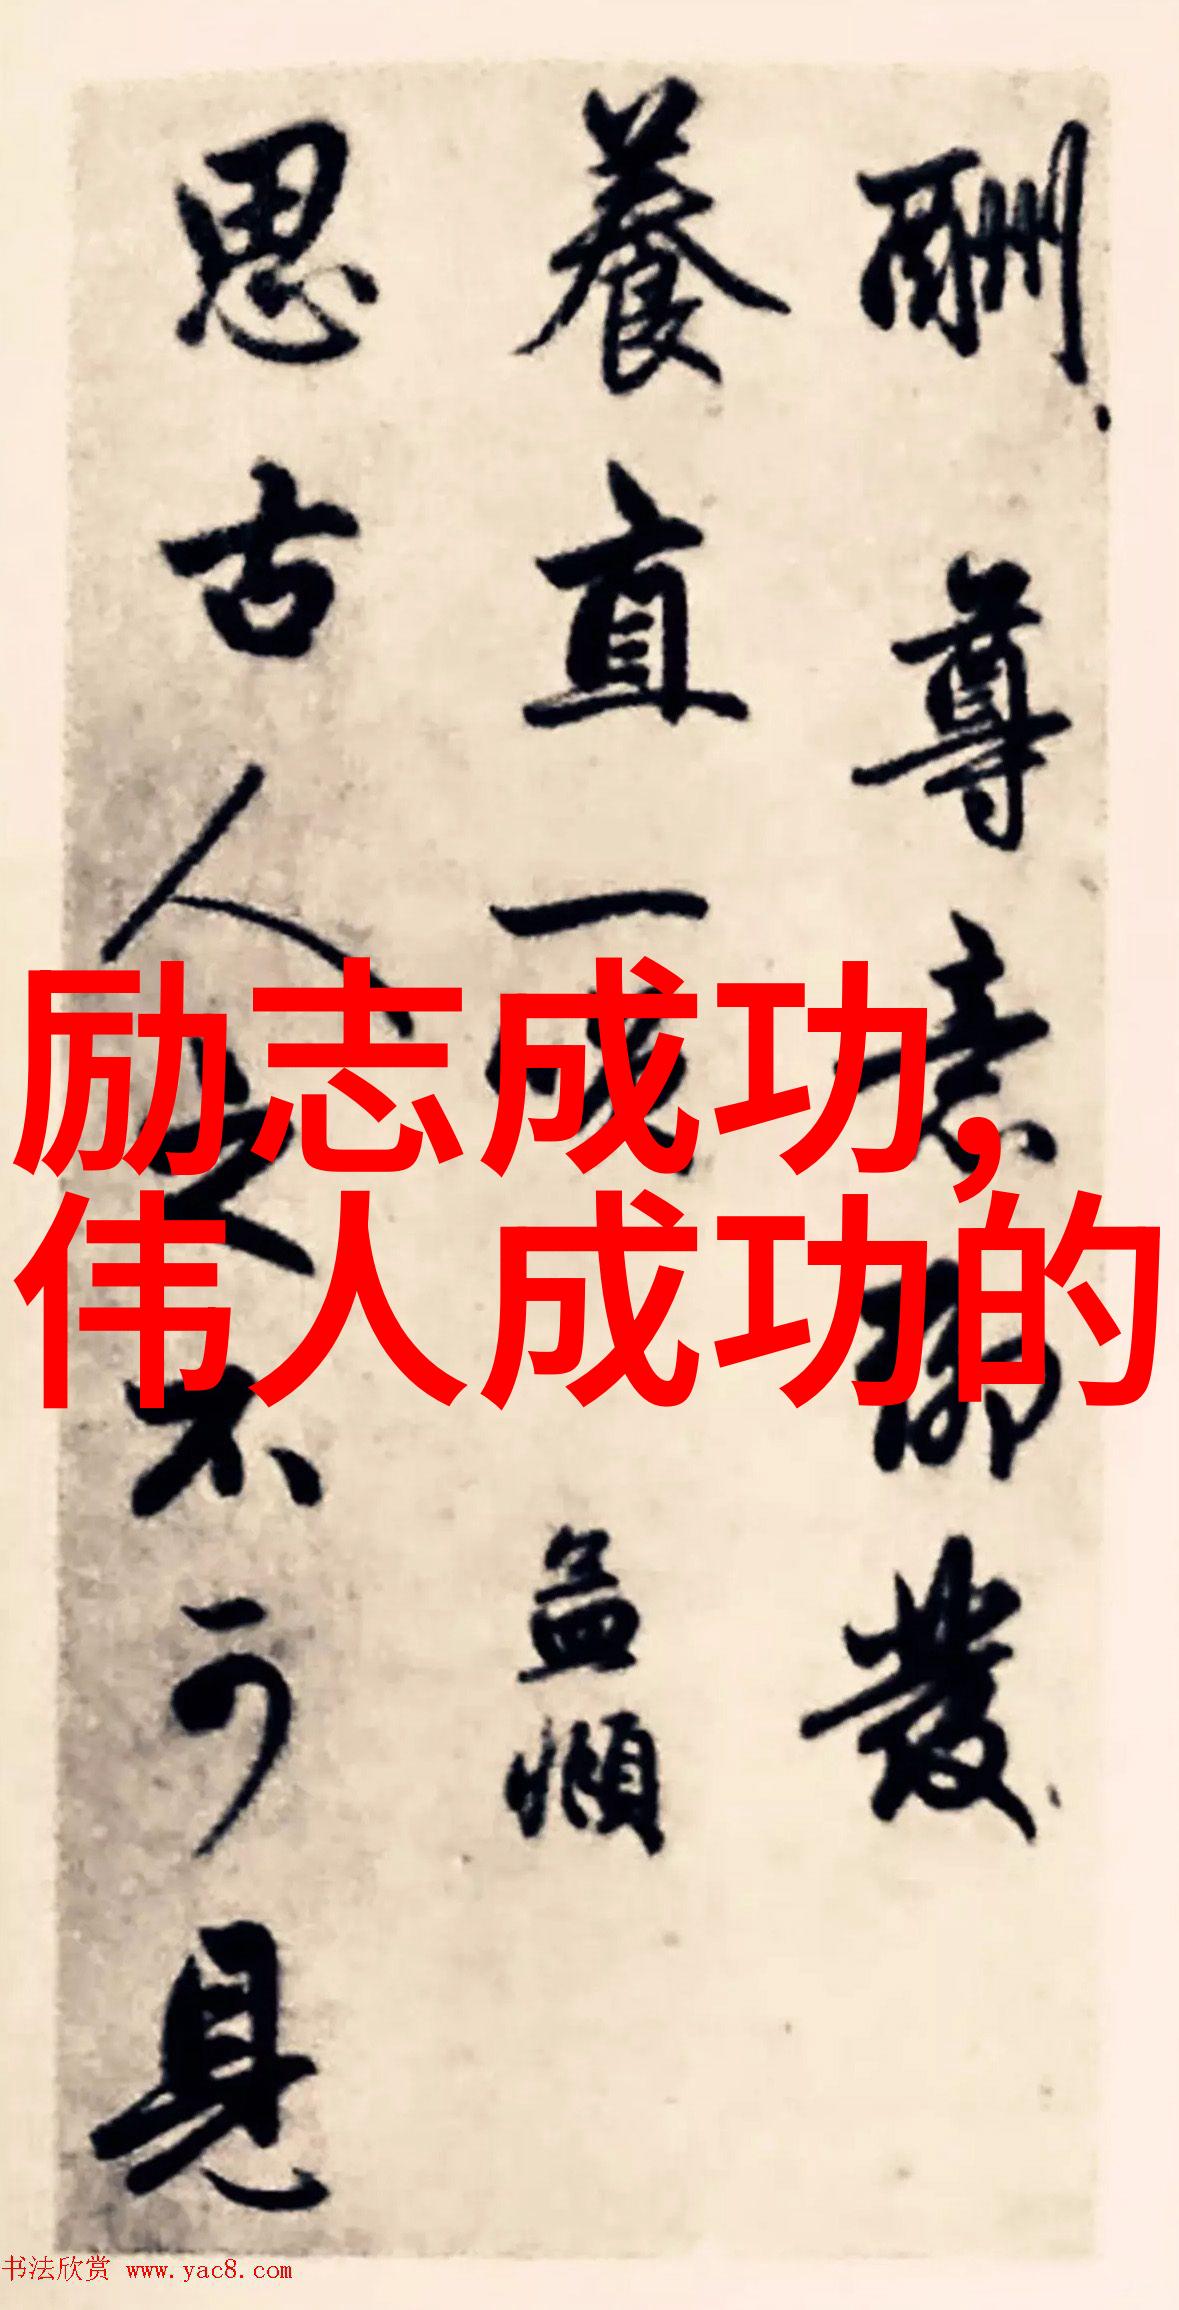 酬尊意聊發
養直一咲孟頫
思古人之不可見
励志成功,
伟人成功的
书法欣赏 www.yac8.com